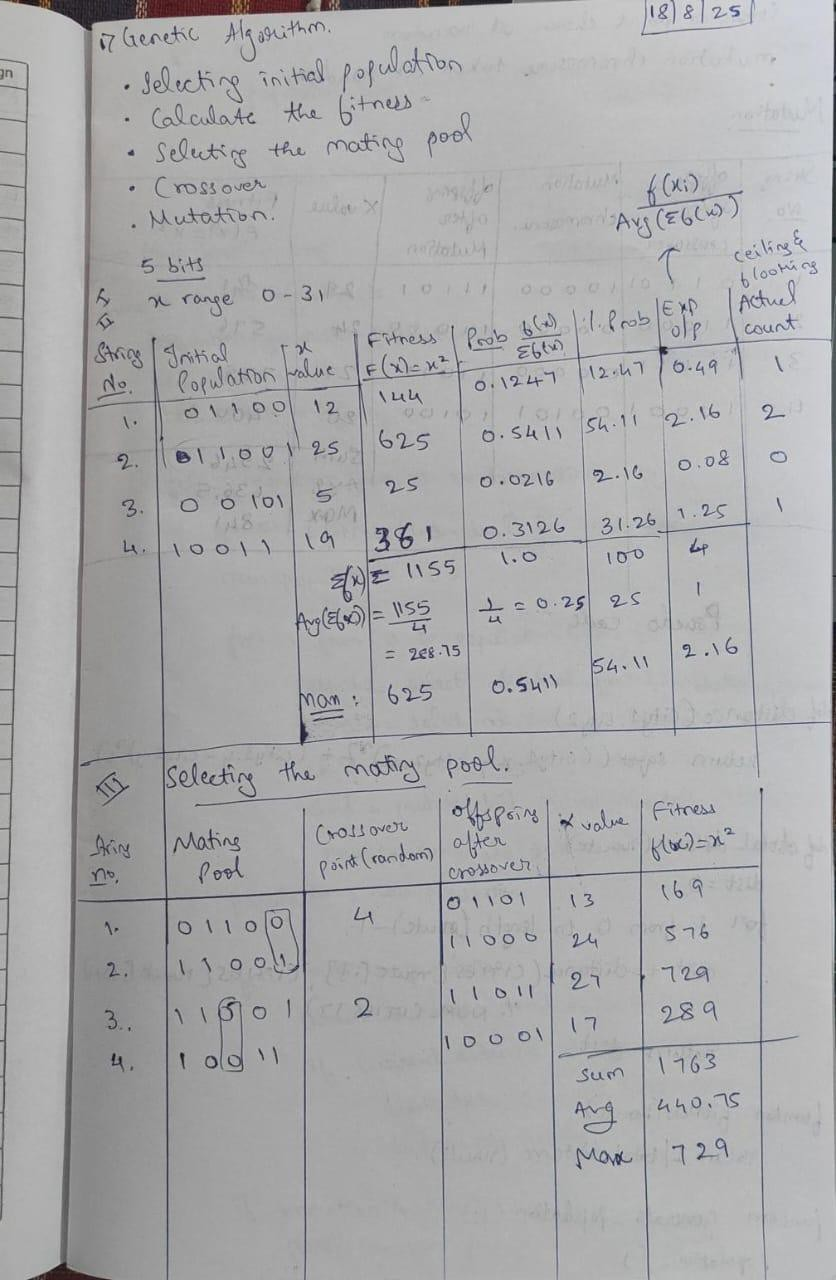 18/8/25
1) Genetic Algorithm.
• Selecting initial population
• Calculate the fitness
• Selecting the mating pool
• Crossover
• Mutation.
f(xi)
Avg(Σf(x))
5 bits
x range 0-31
ceiling &
flooring
String No. | Initial Population | x value | Fitness F(x)=x² | Prob f(x)/Σf(x) | %. Prob | Exp o/p | Actual count
1. 01100 12 144 0.1247 12.47 0.49 1
2. 11001 25 625 0.5411 54.11 2.16 2
3. 00101 5 25 0.0216 2.16 0.08 0
4. 10011 19 361 0.3126 31.26 1.25 1
Σf(x) = 1155 1.0 100 4
Avg(Σf(x)) = 1155/4 1/4 = 0.25 25 1
= 288.75
Max: 625 0.5411 54.11 2.16
III Selecting the mating pool.
String no. | Mating Pool | Crossover point (random) | offspring after crossover | x value | Fitness f(x)=x²
1. 01100 4 01101 13 169
2. 11001 11000 24 576
3. 11001 2 11011 27 729
4. 10011 10001 17 289
Sum 1763
Avg 440.75
Max 729